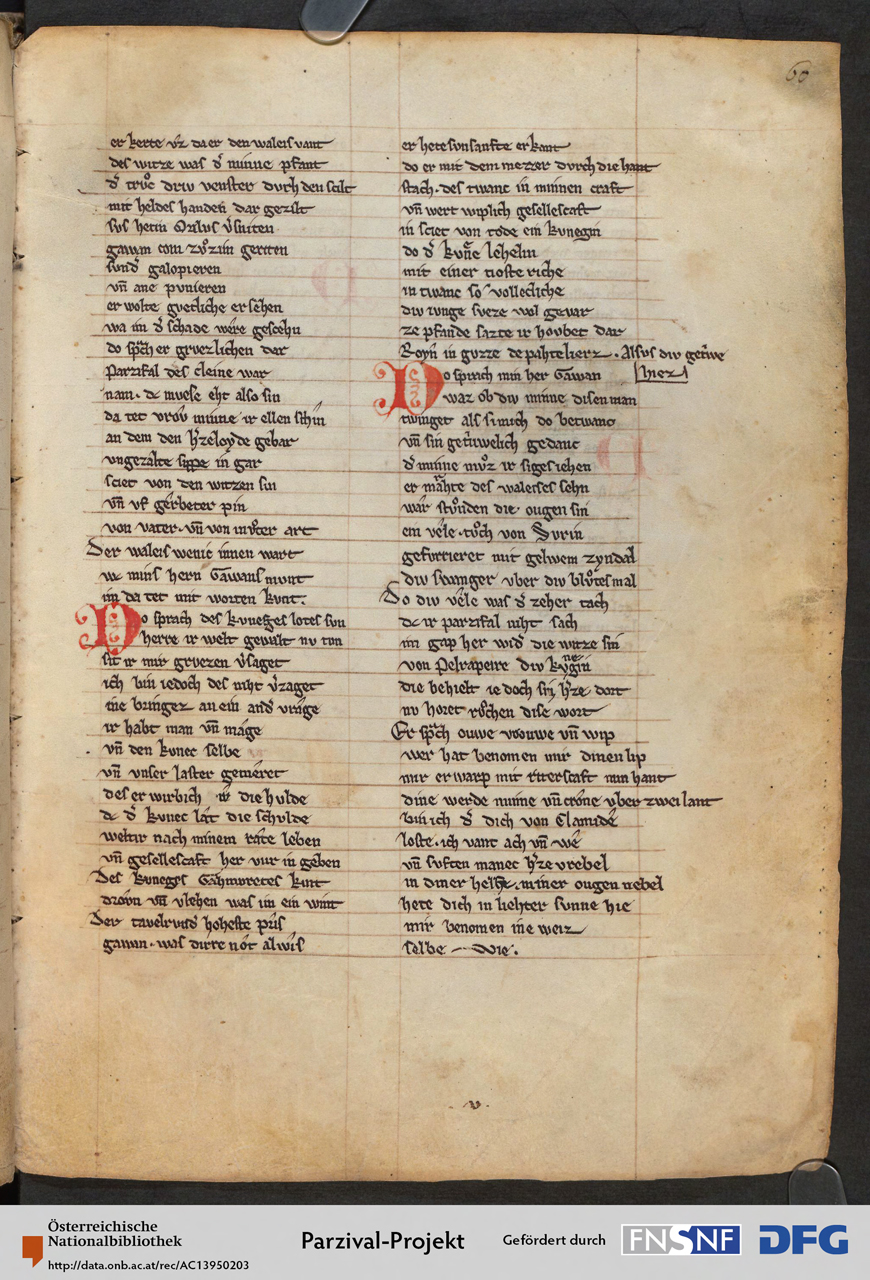 60
er kerte vz da er den waleis vant
des witze was d͛ minne pfant
d͛ trvͦc driv venster dvrch den scilt
mit heldes handen dar gezilt
svs hetin Orilvs v͛sniten
gawan com zvͦzim geriten
svnd͛ galopieren
vn̄ ane pvnieren
er wolte gvetliche ersehen
wa im d͛ schade were gescehn
do spᷓch er grvezlichen dar
Parzifal des cleine war
nam. dc mvese eht also sin
da tet vrov minne ir ellen schin
an dem den h͛zeloyde gebar
vngezalte sippe in gar
sciet von den witzen sin
vn̄ vf gerbeter pin
von vater. vn̄ von mvͦter art
Der waleis wenic innen wart
wc mins hern Gawans mvnt
im da tet mit worten kvnt.
Do sprach des kvneges lotes svn
herre ir welt gewalt nv tvn
sit ir mir grvezen v͛saget
ich bin iedoch des niht v͛zaget
ine bringez an ein and͛ vrage
ir habt man vn̄ mage
vn̄ den kvnec selbe
vn̄ vnser laster gemeret
des erwirbich iv die hvlde
dc d͛ kvnec lat die schvlde
welt ir nach minem rate leben
vn̄ gesellescaft her vur in geben
Des kvneges Gahmvretes kint
drovn vn̄ vlehen was im ein wint
Der tavelrvnd͛ hoheste pris
gawan. was dirre not al wis
er hete svnsanfte erkant
do er mit dem mezzer dvrch die hant
stach. des twanc in minnen craft
vn̄ wert wiplich gesellescaft
in sciet von tode ein kvnegin
do d͛ kvͦne lehelin
mit einer tioste riche
in twanc so vollecliche
div ivnge sveze wol gevar
ze pfande sazte ir hovbet dar
Royn̄ in gvzze de pahtelierz. Alsvs div getͥwe
hiez
Do sprach min her Gawan
waz ob div minne disen man
twinget als si mich do betwanc
vn̄ sin getͥwelich gedanc
d͛ minne mvͦz ir siges iehen
er mahte des waleises sehn
war stvͦnden die ougen sin
ein vele tvͦch von Svrin
gefvrrieret mit gelwem zyndal
div swanger vber div blvͦtes mal
Do div vele was d͛ zeher tach
dc ir parzifal niht sach
im gap her wid͛ die witze sin
von Pelrapeire div kvnegin
die behielt ie doch sin h͛ze dort
nv horet rvͦchen dise wort
Er spᷓch ouwe vrouwe vn̄ wip
wer hat benomen mir dinen lip
mir erwarp mit riterscaft min hant
dine werde minne vn̄ crone vber zwei lant
bin ich d͛ dich von Clamide
loste. ich vant ach vn̄ we
vn̄ svften manec h͛ze vrebel
in diner helfe. miner ougen nebel
hete dich in liehter svnne hie
mir benomen ine weiz
selbe wie.
v.
Österreichische
Nationalbibliothek
http://data.onb.ac.at/rec/AC13950203
Parzival-Projekt
Gefördert durch
FNSNF
DFG